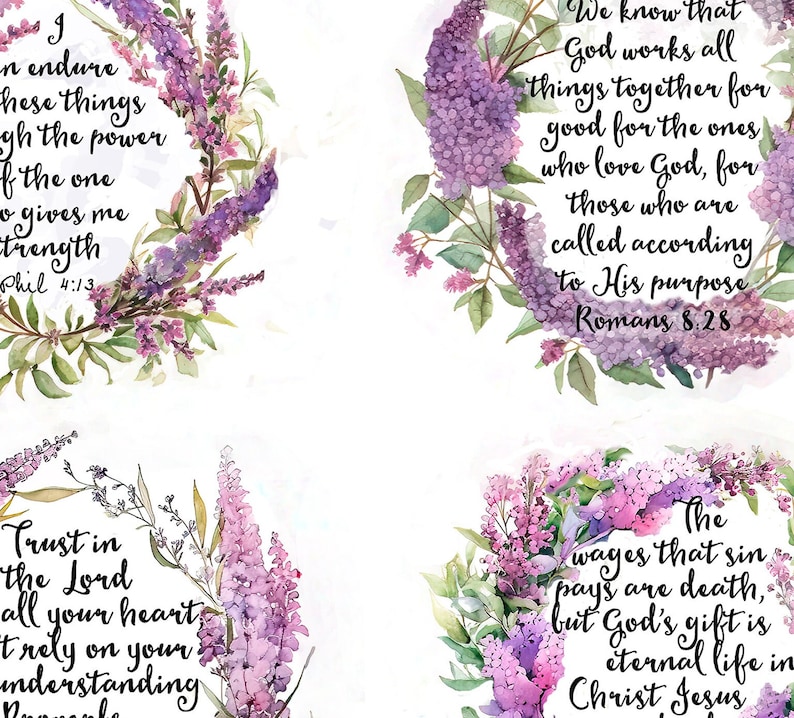 I
n endure
hese things
gh the power
f the one
o gives me
trength
Phil 4:13
We know that
God works all
things together for
good for the ones
who love God, for
those who are
called according
to His purpose
Romans 8:28
Trust in
the Lord
all your heart
t rely on your
understanding
The
wages that sin
pays are death,
but God's gift is
eternal life in
Christ Jesus